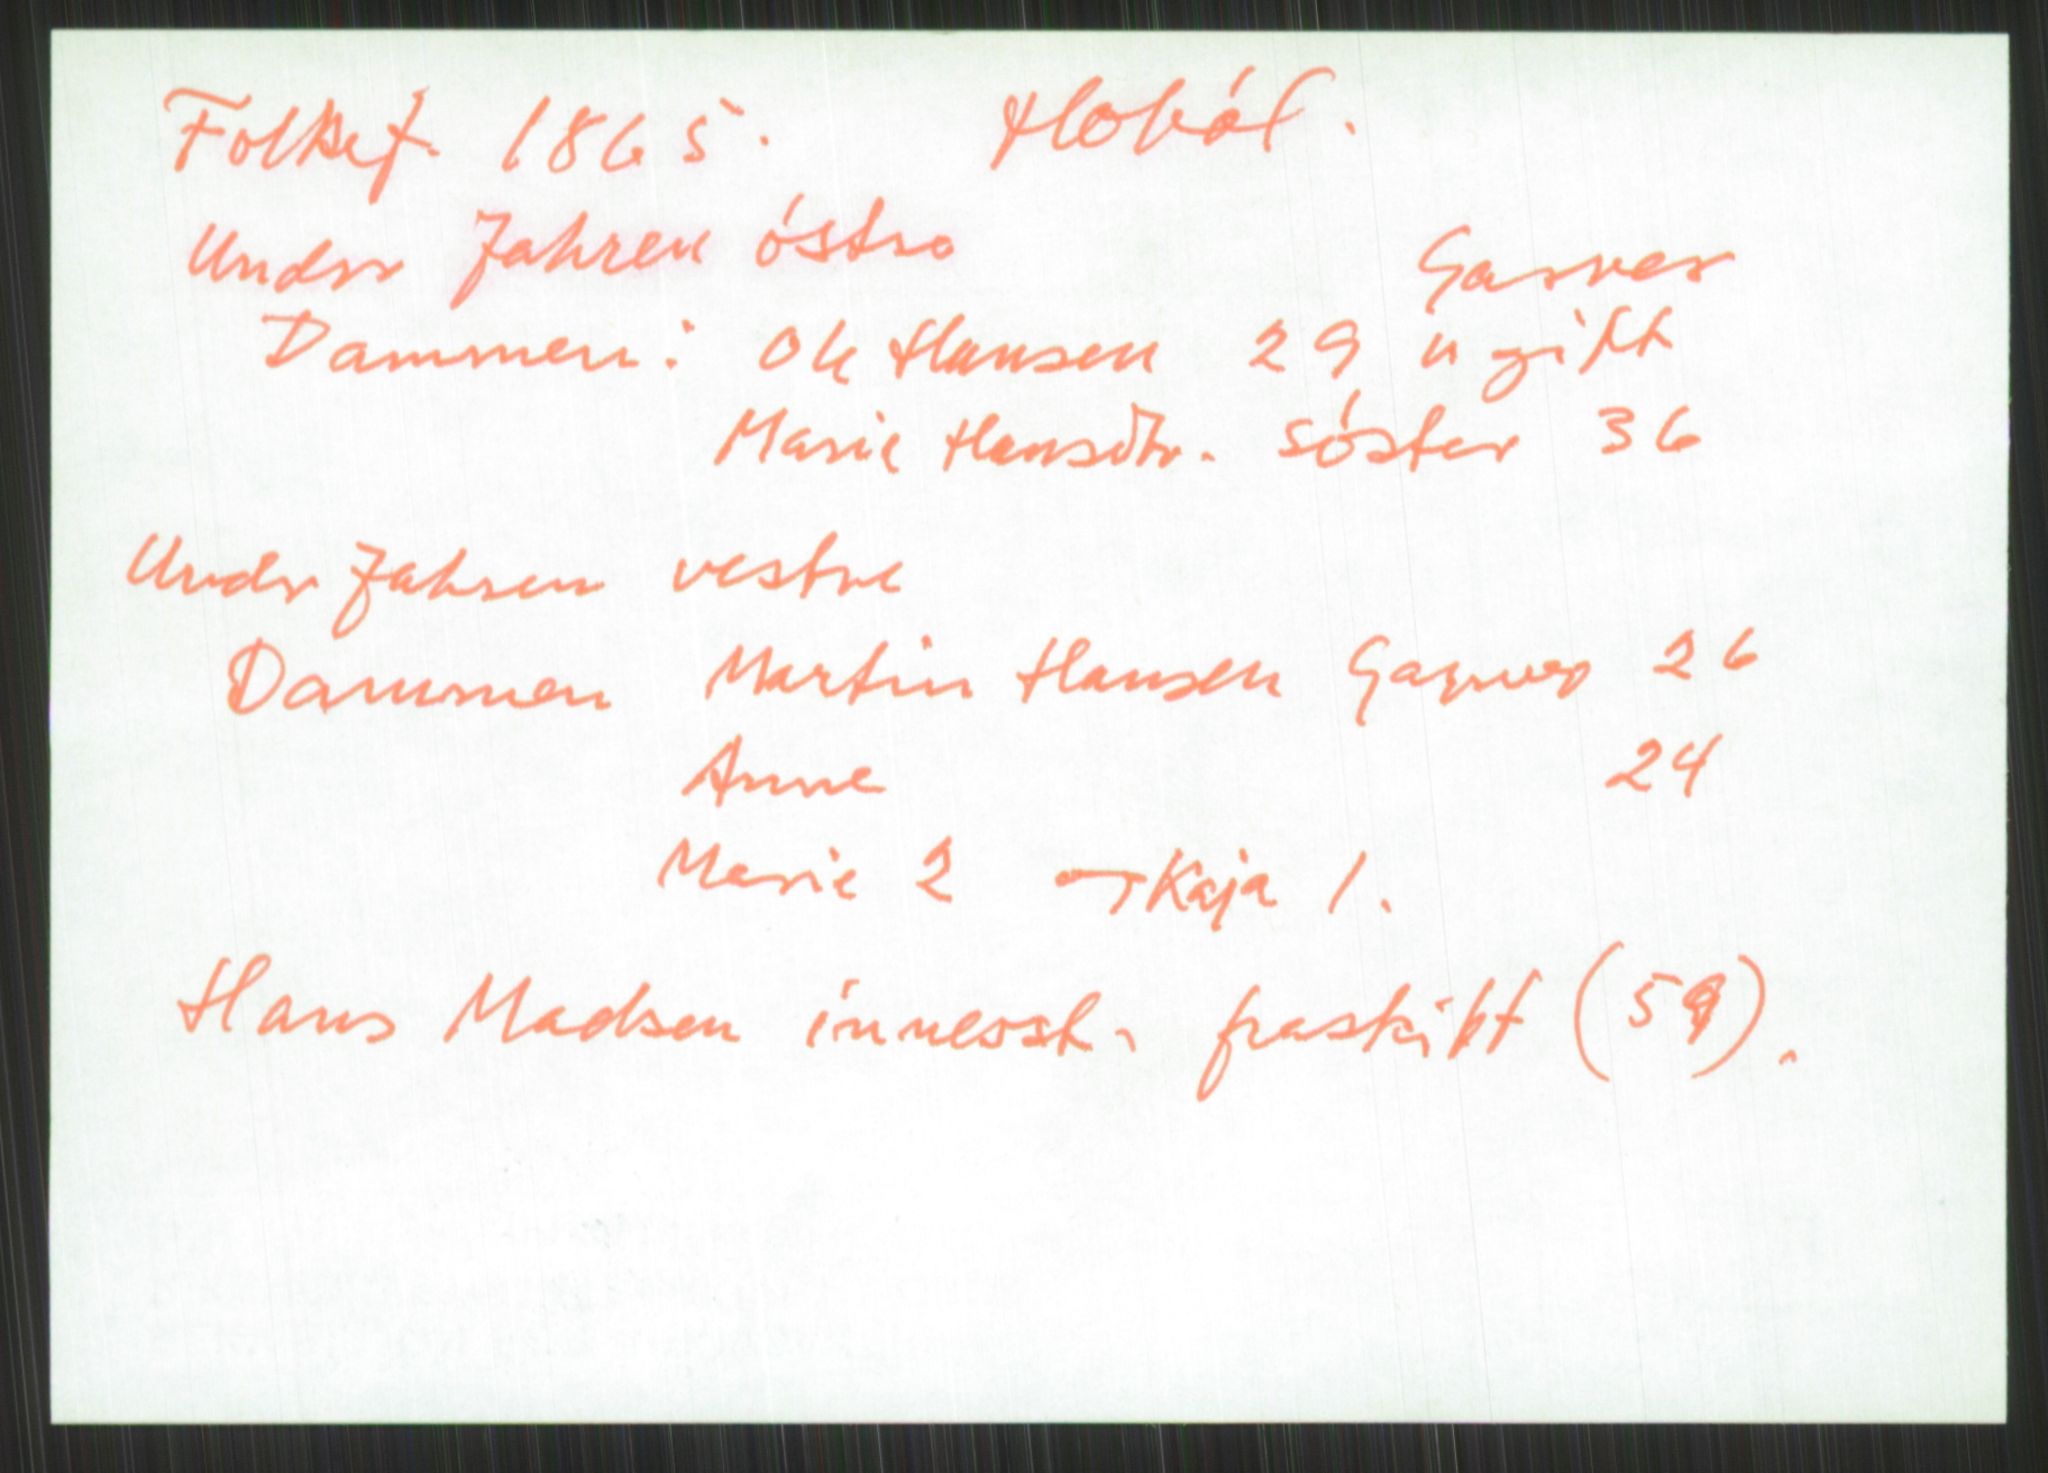 Folket. 1865. Hobøl.
Under Jahren østre
Garver
Dammen: Ole Hansen 29 ugift
Marie Hansdtr. søster 36
Undr Jahren vestre
Dammen Martin Hansen Garver 26
Anne 24
Marie 2 Kaja 1.
Hans Madsen innerst, fraskilt (59).